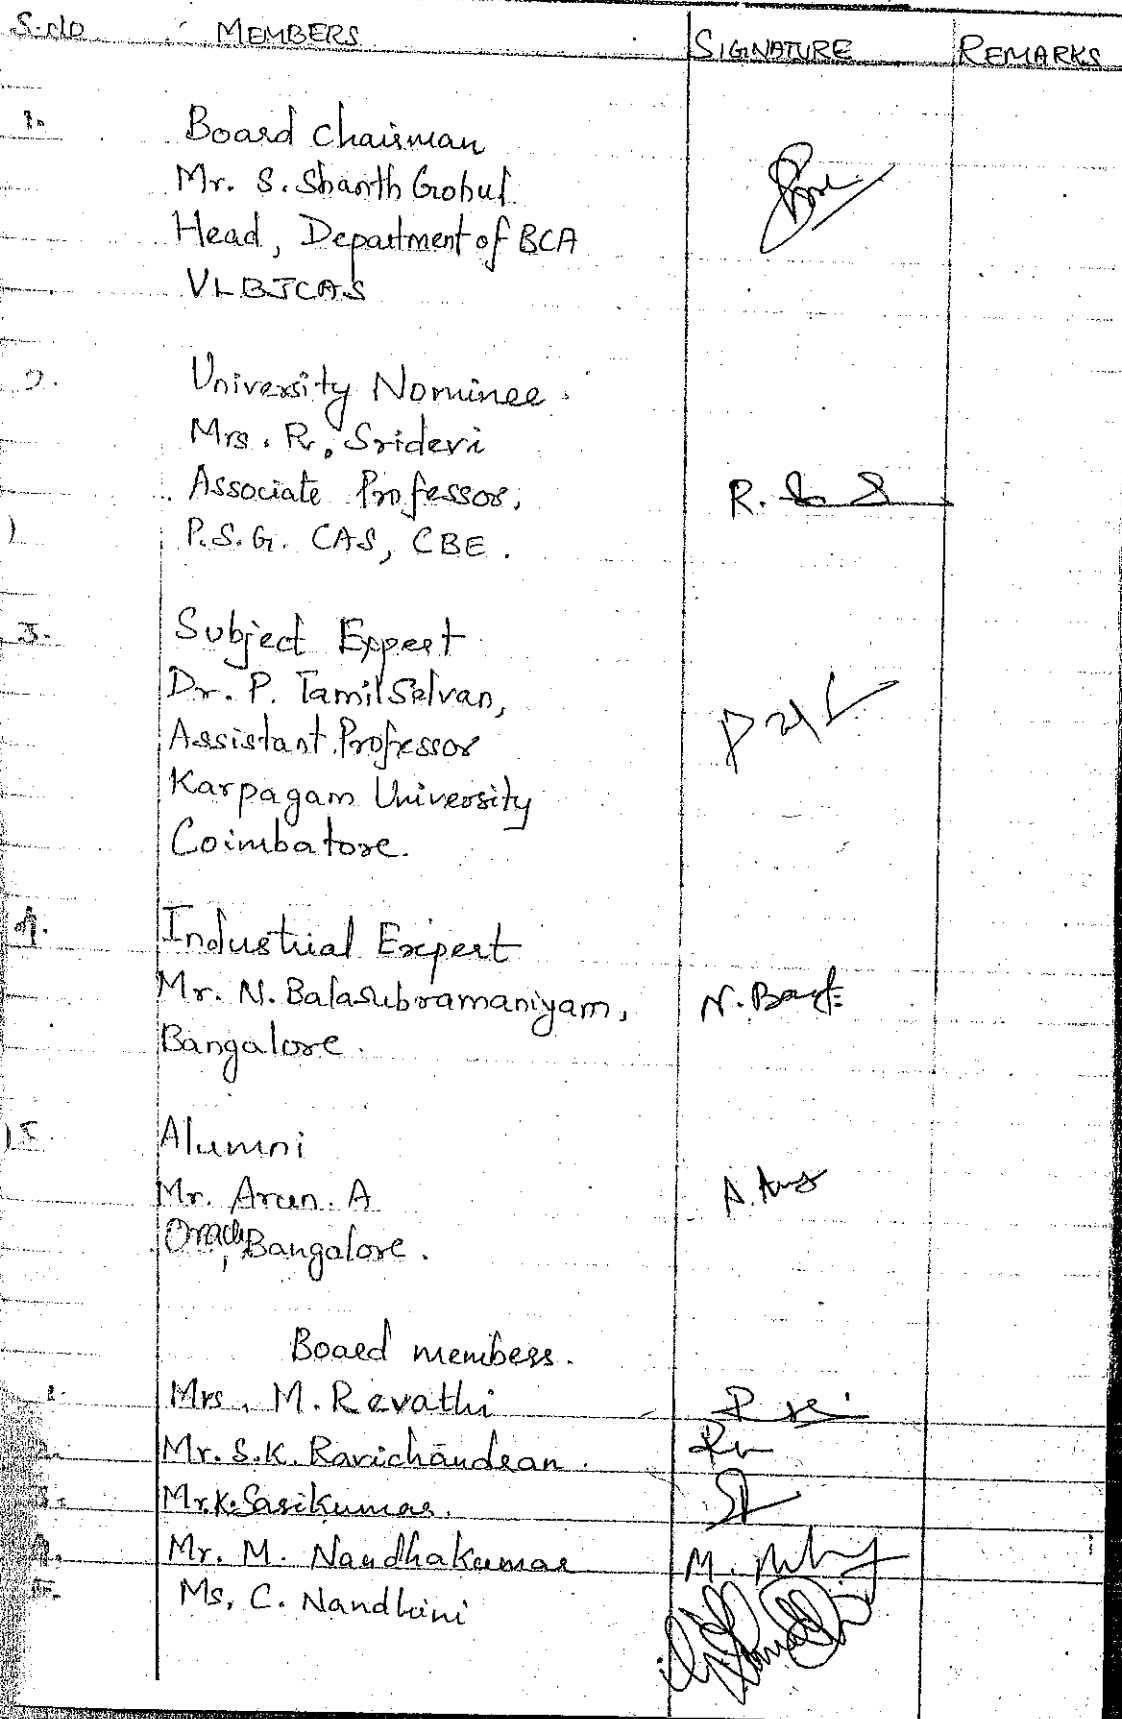 S.No MEMBERS SIGNATURE REMARKS
1. Board Chairman
Mr. S. Shanth Gokul
Head, Department of BCA
VLBJCAS
2. University Nominee.
Mrs. R. Sridevi
Associate Professor, R.
P.S.G. CAS, CBE.
3. Subject Expert
Dr. P. TamilSelvan,
Assistant Professor
Karpagam University
Coimbatore.
4. Industrial Expert
Mr. N. Balasubramaniyam, N.
Bangalore.
5. Alumni
Mr. Arun. A A.
Oracle, Bangalore.
Board members.
1. Mrs. M. Revathi
2. Mr. S.K. Ravichandran.
3. Mr. K. Sasikumar.
4. Mr. M. Nandhakumar M.
5. Ms. C. Nandhini